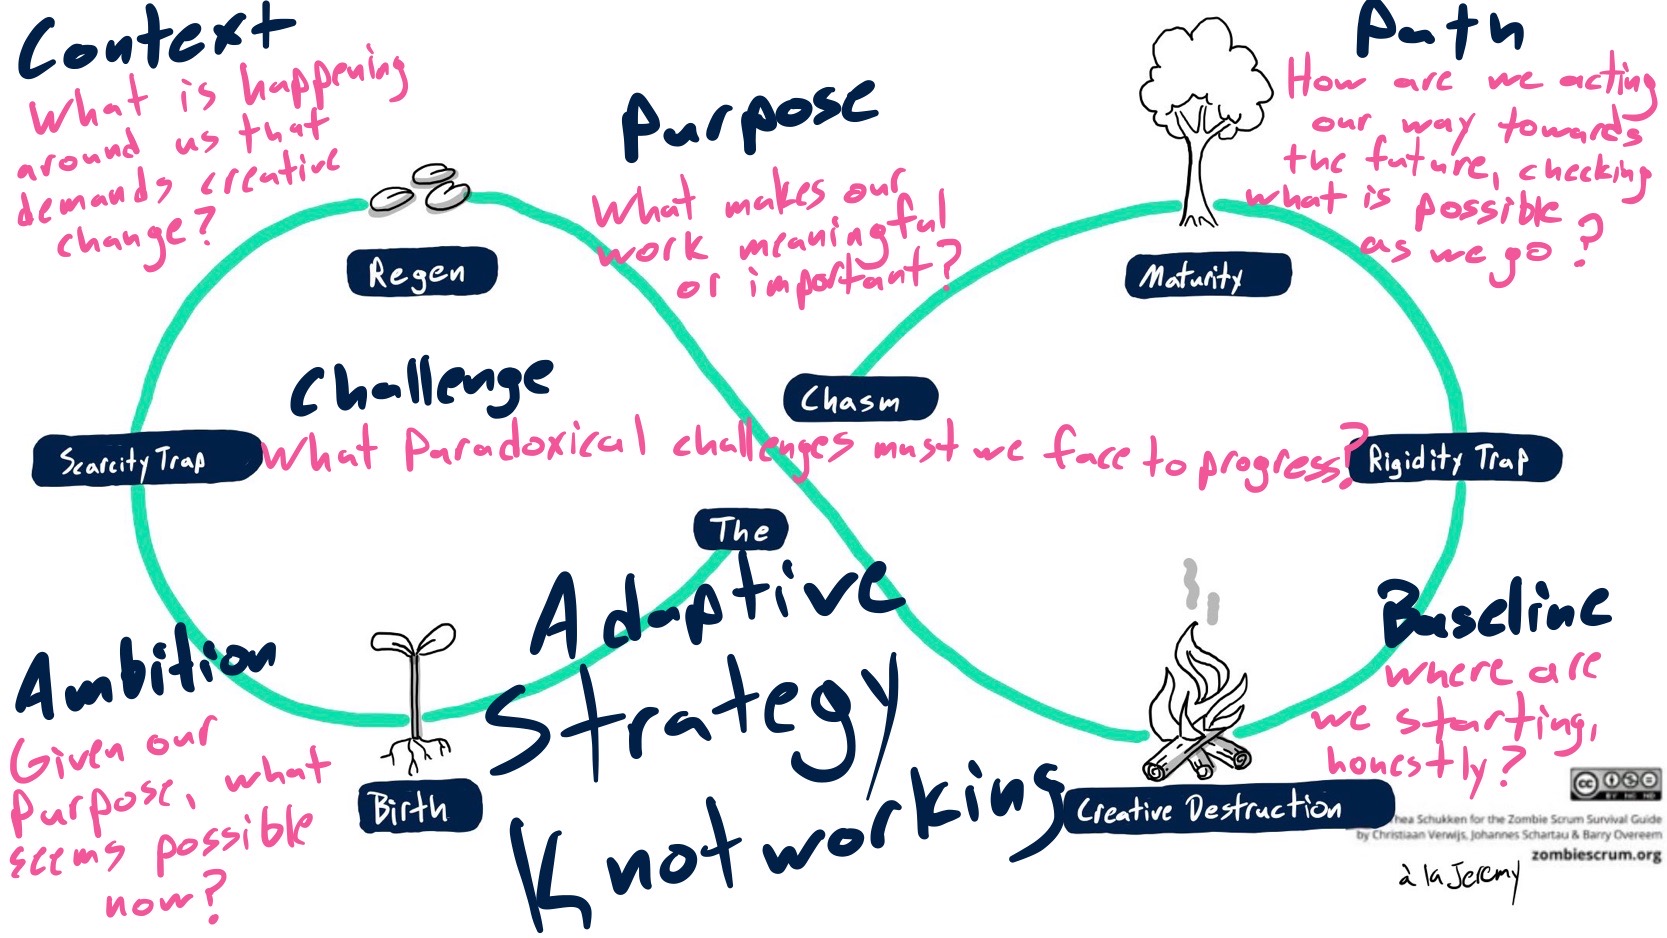 Context
What is happening
around us that
demands creative
change?
Purpose
What makes our
work meaningful
or important?
Path
How are we acting
our way towards
the future, checking
what is possible
as we go?
Regen
Maturity
Challenge
What Paradoxical challenges must we face to progress?
Chasm
Scarcity Trap
Rigidity Trap
The
Adaptive
Strategy
Knotworking
Ambition
Given our
Purpose, what
seems possible
now?
Birth
Baseline
Where are
we starting,
honestly?
Creative Destruction
cc
BY NC ND
hea Schukken for the Zombie Scrum Survival Guide
by Christiaan Verwijs, Johannes Schartau & Barry Overeem
zombiescrum.org
à la Jeremy